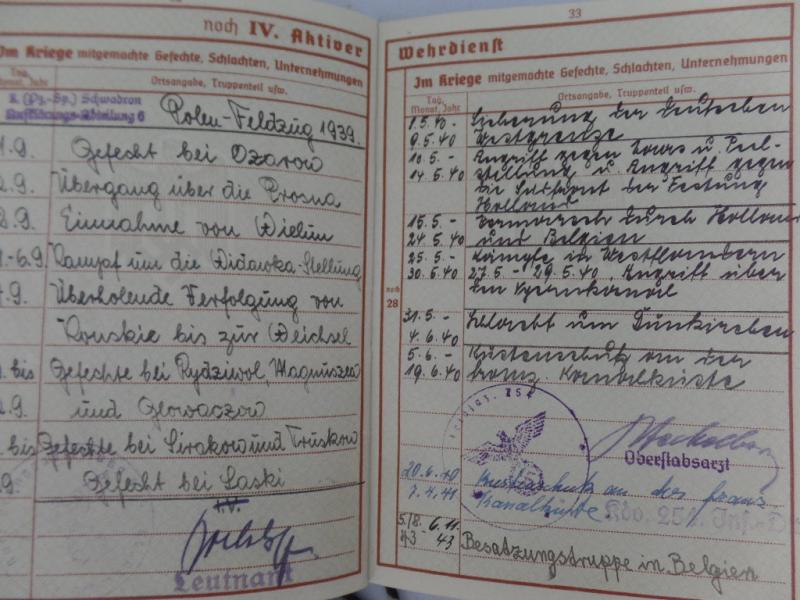 noch IV. Aktiver
Im Kriege mitgemachte Gefechte, Schlachten, Unternehmungen
Tag, Monat, Jahr
Ortsangabe, Truppenteil usw.
(Pz.-Sp.) Schwadron
Aufklärungs-Abteilung 6
Polen-Feldzug 1939.
1.9. Gefecht bei Ozarow
2.9. Übergang über die Prosna
3.9. Einnahme von Wielun
-6.9. Kampf um die Widawka-Stellung
7.9. Überholende Verfolgung von
Konskie bis zur Weichsel
bis Gefechte bei Rydziwol, Magnuszew
9. und Glowaczow
bis Gefechte bei Sirakow und Truskow
9. Gefecht bei Laski
I.V.
Leutnant
33
Wehrdienst
Im Kriege mitgemachte Gefechte, Schlachten, Unternehmungen
Tag, Monat, Jahr
Ortsangabe, Truppenteil usw.
noch 28
1.5.40 - Sicherung der Deutschen
9.5.40 Westgrenze
10.5. - Angriff gegen Maas u. Peel-
14.5.40 stellung u. Angriff gegen
die Südfront der Festung
Holland
15.5. - Vormarsch durch Holland
24.5.40 und Belgien
25.5. - Kämpfe in Westflandern
30.5.40 27.5. - 29.5.40, Angriff über
den Ypernkanal
31.5. - Schlacht um Dünkirchen
4.6.40
5.6. - Küstenschutz an der
19.6.40 franz. Kanalküste
Oberstabsarzt
20.6.40 Küstenschutz an der franz.
7.4.41 Kanalküste Kdo. 254. Inf.-D
5./8. 6.11.
43 - 43 Besatzungstruppe in Belgien